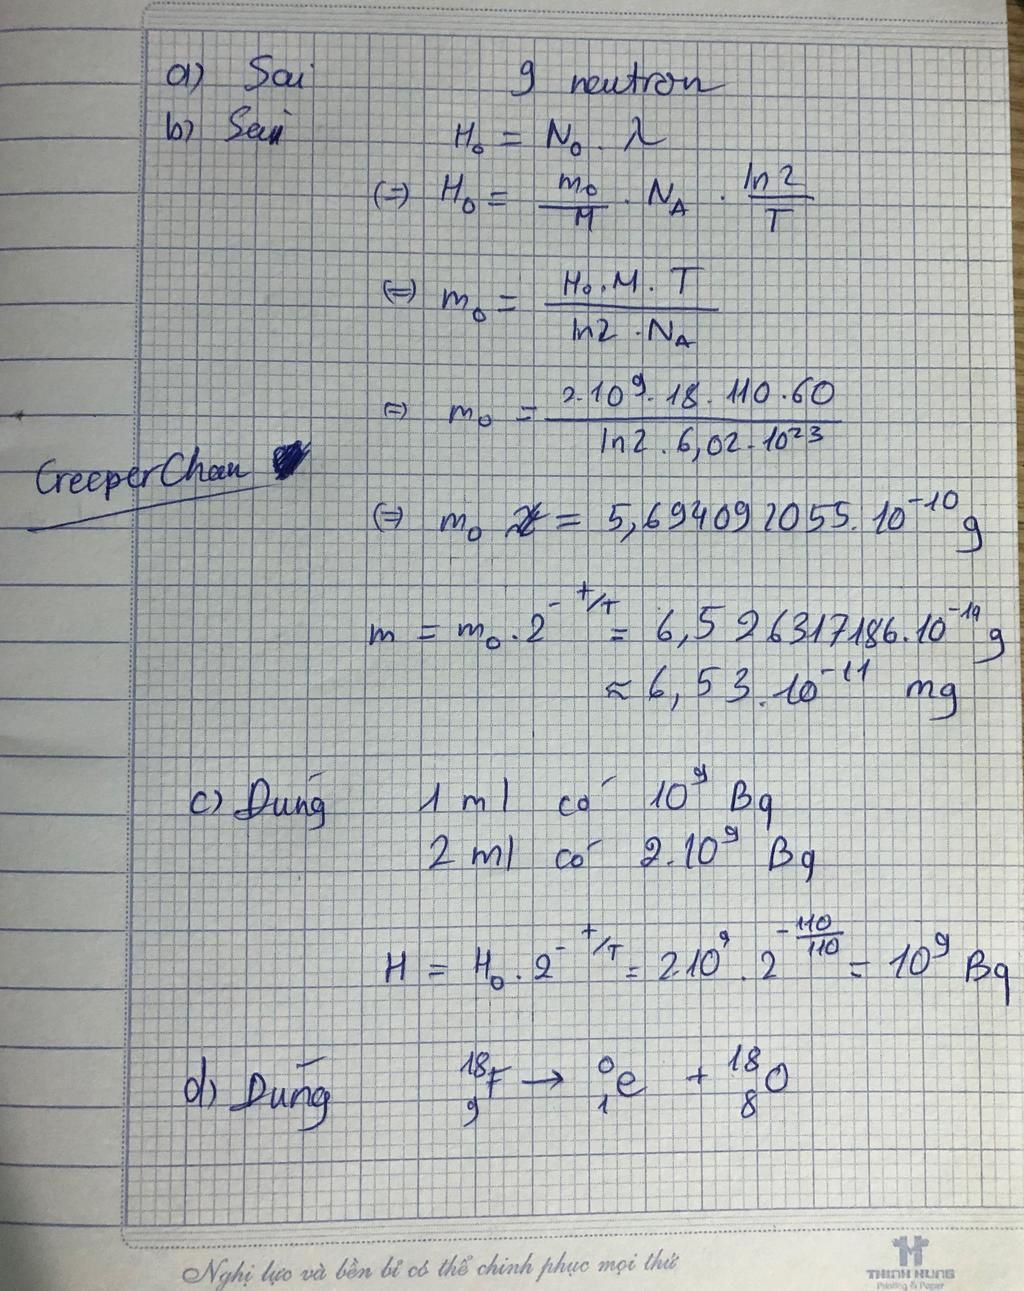 a) Sai 9 neutron
b) Sai H₀ = N₀ . λ
(=) H₀ = m₀/M . N_A . ln2/T
(=) m₀ = H₀.M.T / ln2.N_A
(=) m₀ = 2.10⁹.18.110.60 / ln2.6,02.10²³
CreeperChan
(=) m₀ = 5,694092055.10⁻¹⁰ g
m = m₀.2^(-t/T) = 6,526317186.10⁻¹⁴ g
≈ 6,53.10⁻¹¹ mg
c) Đúng 1 ml có 10⁹ Bq
2 ml có 2.10⁹ Bq
H = H₀.2^(-t/T) = 2.10⁹.2^(-110/110) = 10⁹ Bq
d) Đúng ¹⁸₉F → ⁰₁e + ¹⁸₈O
Nghị lực và bền bỉ có thể chinh phục mọi thứ
THINH HUNG
Printing & Paper